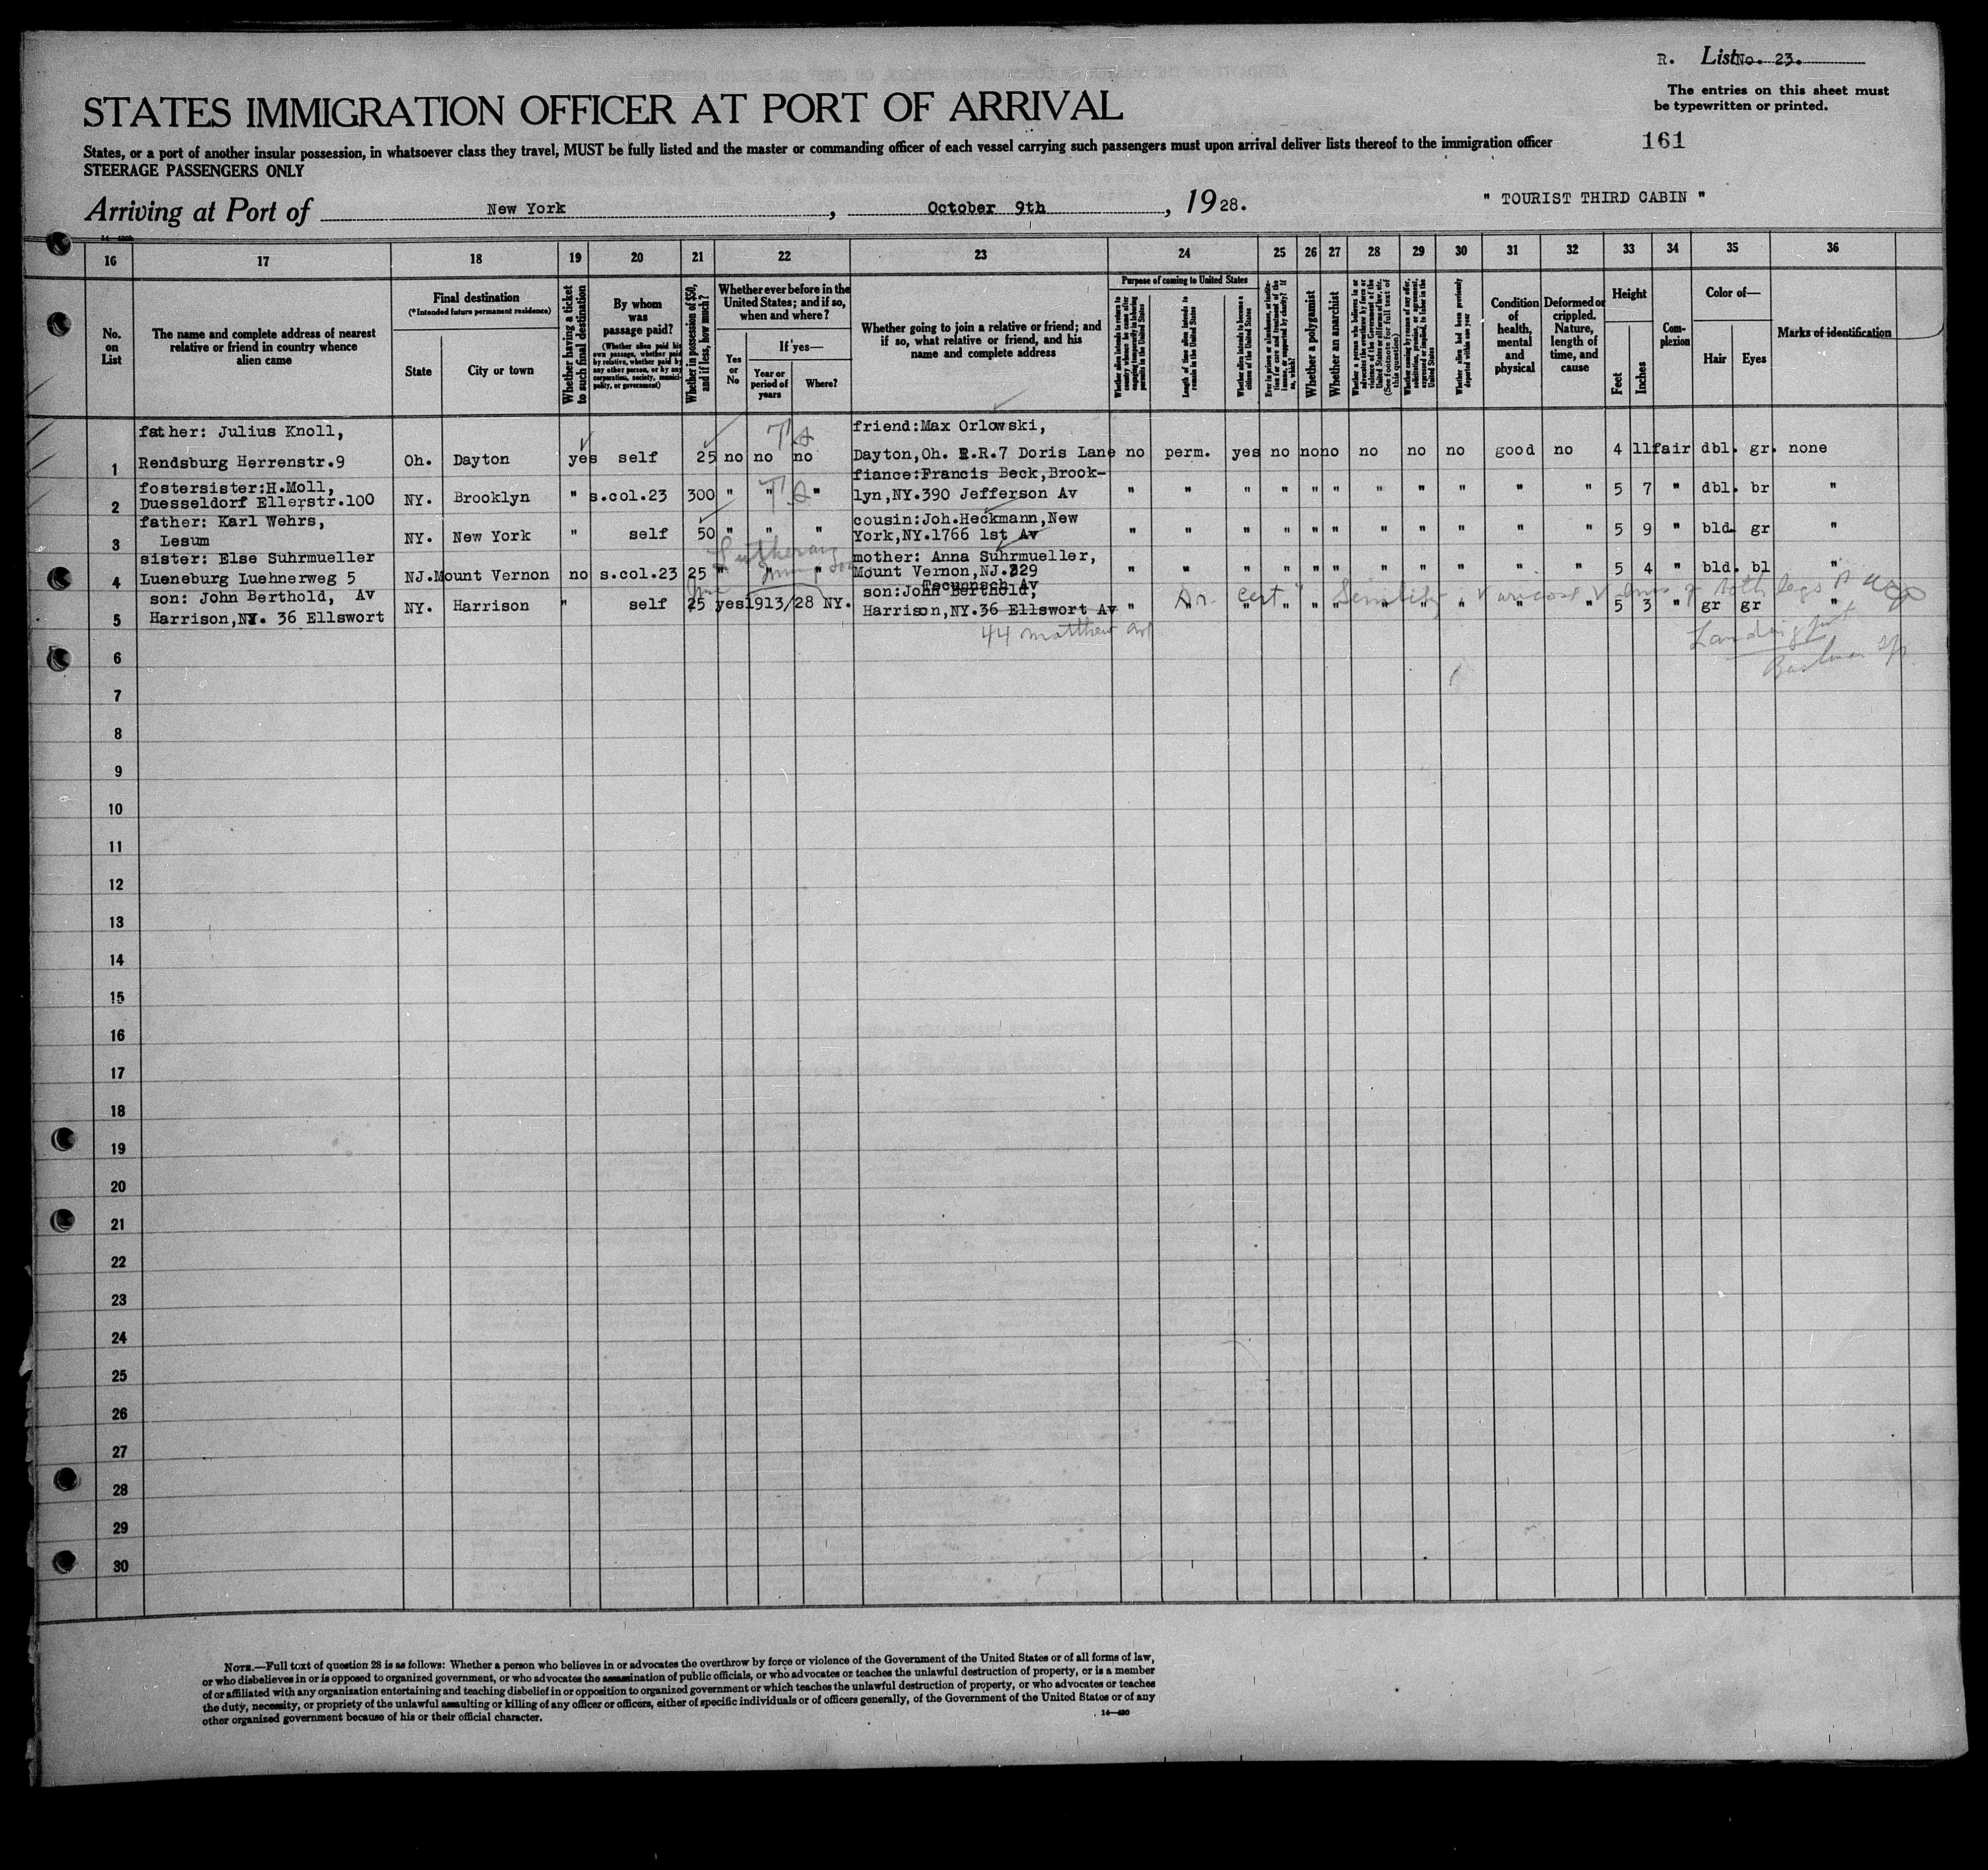 R. List No. 23.
The entries on this sheet must
be typewritten or printed.
STATES IMMIGRATION OFFICER AT PORT OF ARRIVAL
161
States, or a port of another insular possession, in whatsoever class they travel, MUST be fully listed and the master or commanding officer of each vessel carrying such passengers must upon arrival deliver lists thereof to the immigration officer
STEERAGE PASSENGERS ONLY
Arriving at Port of New York, October 9th, 1928.
" TOURIST THIRD CABIN "
16 17 18 19 20 21 22 23 24 25 26 27 28 29 30 31 32 33 34 35 36
No.
on
List
The name and complete address of nearest
relative or friend in country whence
alien came
Final destination
(*Intended future permanent residence)
State
City or town
Whether having a ticket
to such final destination
By whom
was
passage paid?
(Whether alien paid his
own passage, whether paid
by relative, whether paid by
any other person, or by any
corporation, society, munici-
pality, or government)
Whether in possession of $50,
and if less, how much?
Whether ever before in the
United States; and if so,
when and where?
Yes
or
No
If yes—
Year or
period of
years
Where?
Whether going to join a relative or friend; and
if so, what relative or friend, and his
name and complete address
Purpose of coming to United States
Whether alien intends to return to
country whence he came after
engaging temporarily in laboring
pursuits in the United States
Length of time alien intends to
remain in the United States
Whether alien intends to become a
citizen of the United States
Ever in prison or almshouse, or institu-
tion for care and treatment of the
insane, or supported by charity? If
so, which?
Whether a polygamist
Whether an anarchist
Whether a person who believes in or
advocates the overthrow by force or
violence of the Government of the
United States or all forms of law, etc.
(See footnote for full text of
this question)
Whether coming by reason of any offer,
solicitation, promise, or agreement,
expressed or implied, to labor in the
United States
Whether alien had been previously
deported within one year
Condition
of
health,
mental
and
physical
Deformed or
crippled.
Nature,
length of
time, and
cause
Height
Feet
Inches
Com-
plexion
Color of—
Hair
Eyes
Marks of identification
father: Julius Knoll, friend:Max Orlowski,
1 Rendsburg Herrenstr.9 Oh. Dayton yes self 25 no no no Dayton,Oh. R.R.7 Doris Lane no perm. yes no no no no no no good no 4 11 fair dbl. gr. none
fostersister:H.Moll, fiance:Francis Beck,Brook-
2 Duesseldorf Ellerstr.100 NY. Brooklyn " s.col.23 300 " " " lyn,NY.390 Jefferson Av " " " " " " " " " " " 5 7 " dbl. br "
father: Karl Wehrs, cousin:Joh.Heckmann,New
3 Lesum NY. New York " self 50 " " " York,NY.1766 1st Av " " " " " " " " " " " 5 9 " bld. gr "
sister: Else Suhrmueller mother: Anna Suhrmueller,
4 Lueneburg Luehnerweg 5 NJ. Mount Vernon no s.col.23 25 " " " Mount Vernon,NJ. 329 " " " " " " " " " " " 5 4 " bld. bl "
son: John Berthold, Av son:John Berthold,
5 Harrison,NY. 36 Ellswort NY. Harrison " self 25 yes 1913/28 NY. Harrison,NY.36 Ellswort Av " " " " " " " " " " " 5 3 " gr gr "
44 Matthew
cert Senility, varicose veins of both legs
6
7
8
9
10
11
12
13
14
15
16
17
18
19
20
21
22
23
24
25
26
27
28
29
30
NOTE.—Full text of question 28 is as follows: Whether a person who believes in or advocates the overthrow by force or violence of the Government of the United States or of all forms of law,
or who disbelieves in or is opposed to organized government, or who advocates the assassination of public officials, or who advocates or teaches the unlawful destruction of property, or is a member
of or affiliated with any organization entertaining and teaching disbelief in or opposition to organized government or which teaches the unlawful destruction of property, or who advocates or teaches
the duty, necessity, or propriety of the unlawful assaulting or killing of any officer or officers, either of specific individuals or of officers generally, of the Government of the United States or of any
other organized government because of his or their official character.
14—430